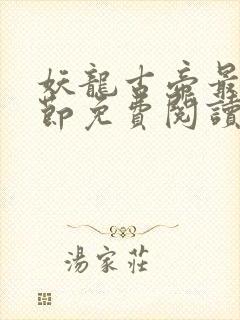 妖龍古帝最
節免費閱讀
湯家莊